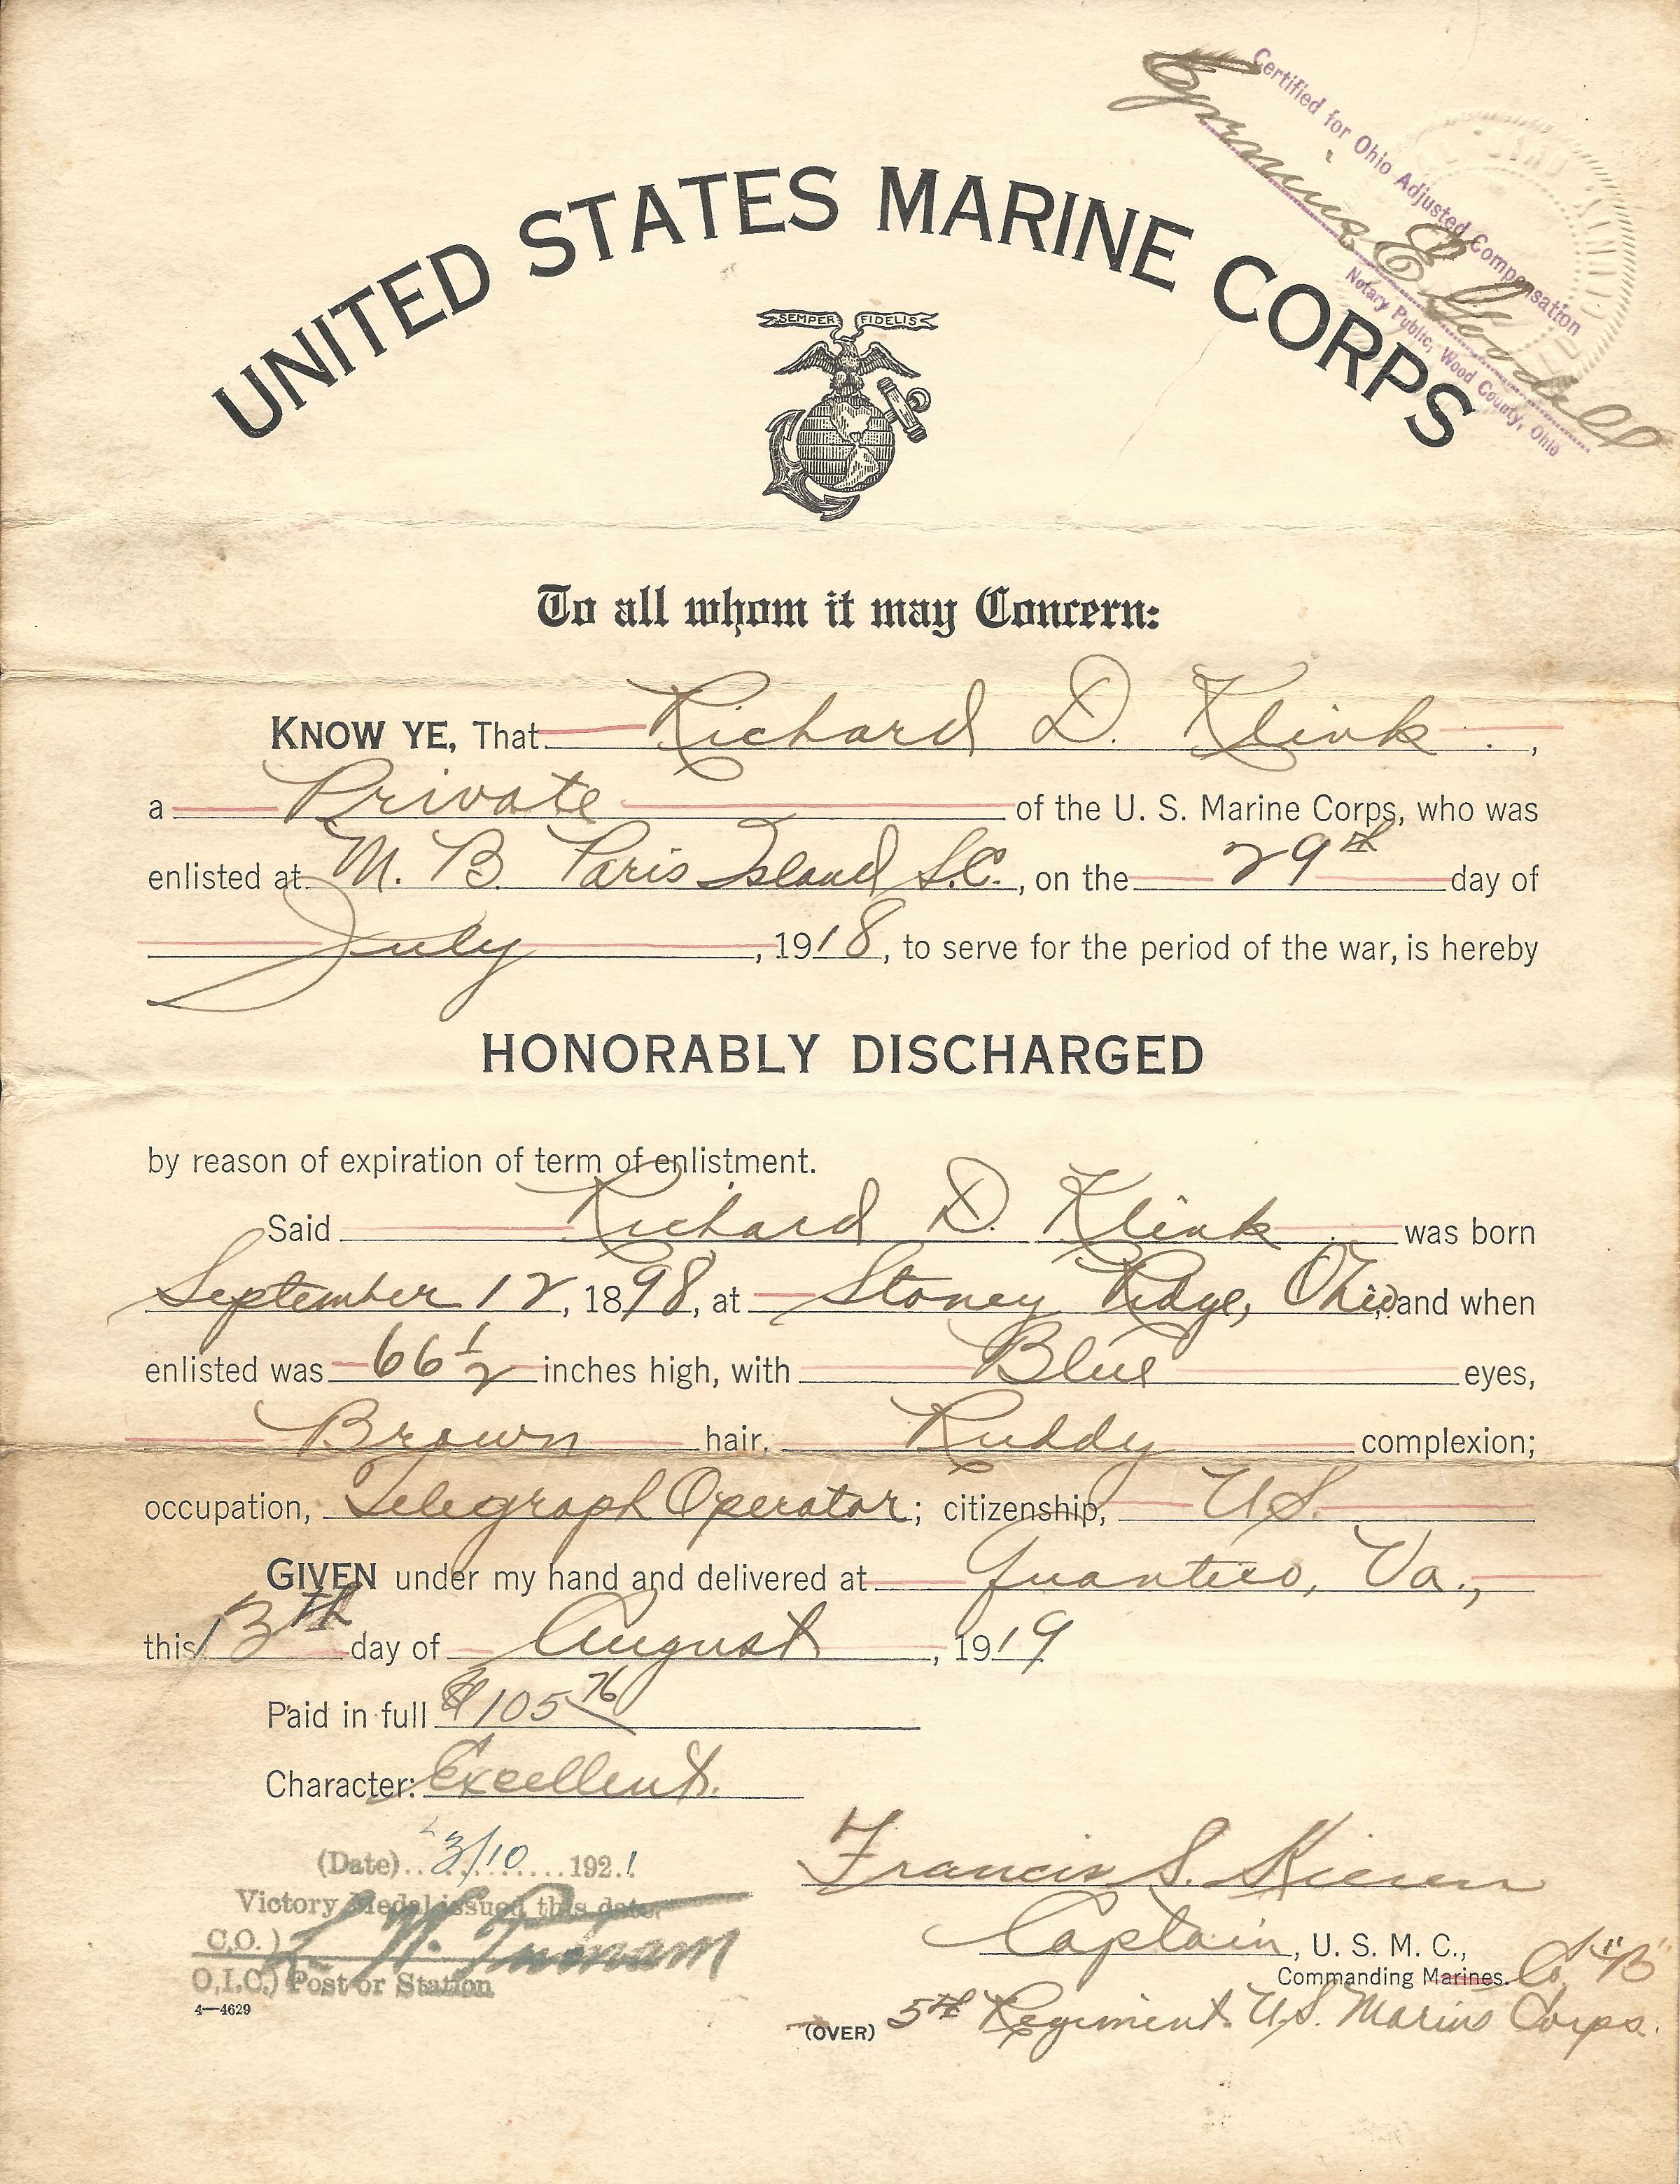 Certified for Ohio Adjusted Compensation
Notary Public, Wood County, Ohio
UNITED STATES MARINE CORPS
SEMPER FIDELIS
To all whom it may Concern:
KNOW YE, That Richard D. Klink.,
a Private of the U. S. Marine Corps, who was
enlisted at M. B. Paris Island S.C., on the 29th day of
July, 1918, to serve for the period of the war, is hereby
HONORABLY DISCHARGED
by reason of expiration of term of enlistment.
Said Richard D. Klink. was born
September 12, 1898, at Stoney Ridge, Ohio, and when
enlisted was 66 1/2 inches high, with Blue eyes,
Brown hair, Ruddy complexion;
occupation, Telegraph Operator; citizenship, U.S.
GIVEN under my hand and delivered at Quantico, Va.,
this 13th day of August, 1919
Paid in full $105 76
Character: Excellent.
(Date) 3/10 1921
Victory Medal issued this date.
C.O. )
O.I.C.) Post or Station
4—4629
Francis S.
Captain, U. S. M. C.,
Commanding Marines. Co. "B"
(OVER) 5th Regiment. U.S. Marine Corps.